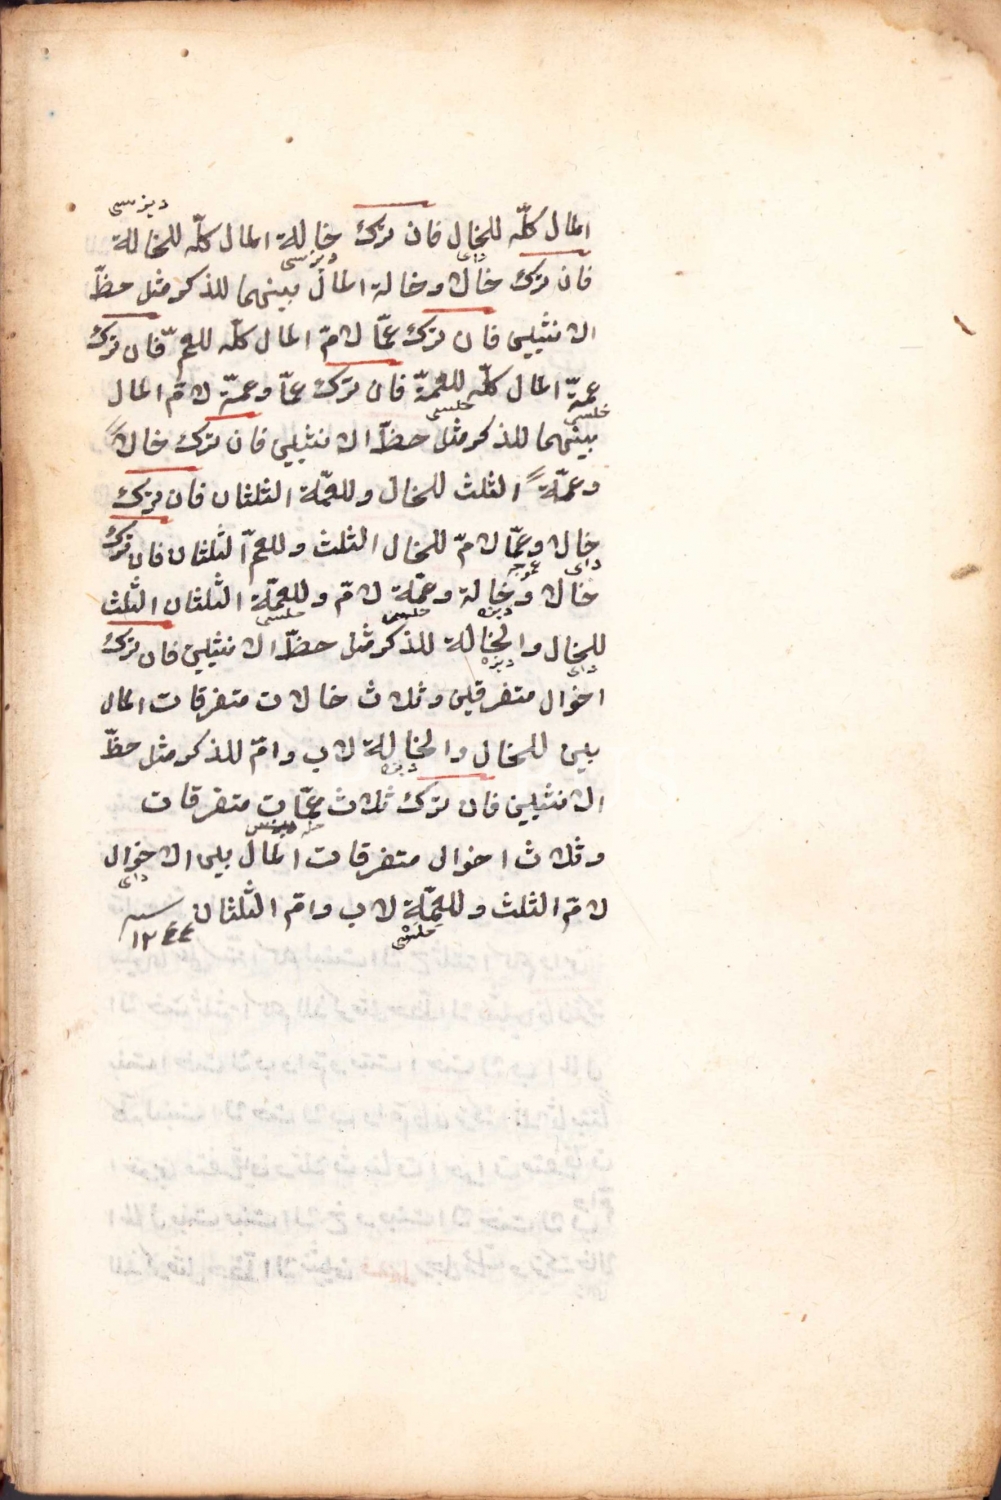 ديزسى
المال كلّه للخال فان ترك خالة المال كلّه للخالة
داى ديزسى
فان ترك خالا وخالة المال بينهما للذكر مثل حظّ
الانثيين فان ترك عمّا لامّ المال كلّه للعمّ فان ترك
عمّة المال كلّه للعمّة فان ترك عمّا وعمّة لامّ المال
خلسى خلسى
بينهما للذكر مثل حظّ الانثيين فان ترك خالاً
وعمّةً الثلث للخال وللعمّة الثلثان فان ترك
خالا وعمّا لامّ للخال الثلث وللعمّ الثلثان فان ترك
داى عموجه
خالا وخالة وعمّة لامّ وللعمّة الثلثان الثلث
ديزه خلسى خلسى
للخال والخالة للذكر مثل حظّ الانثيين فان ترك
داى ديزه
اخوال متفرقين وثلاث خالات متفرقات المال
بين للخال والخالة لاب وامّ للذكر مثل حظّ
ديزه
الانثيين فان ترك ثلاث عمّات متفرقات
وثلاث اخوال متفرقات المال بين الاخوال
داى
لامّ الثلث وللعمّة لاب وامّ الثلثان سنه
خلسى
١٢٤٤